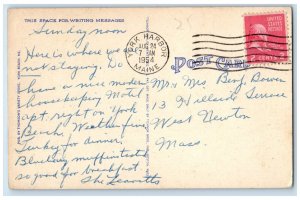 THIS SPACE FOR WRITING MESSAGES
Sunday noon
Here is where we are
now staying. Do
have a nice modern
housekeeping Motel
apt right on York
Beach. Weather fine
Turkey for dinner,
Blueberry muffins tasted
so good for breakfast.
The Leavitts
YORK HARBOR
AUG 24
7 AM
1954
MAINE
POST CARD
UNITED STATES POSTAGE
2 CENTS 2
Mr & Mrs Benj. Bowen
13 Hillside Terrace
West Newton
Mass.